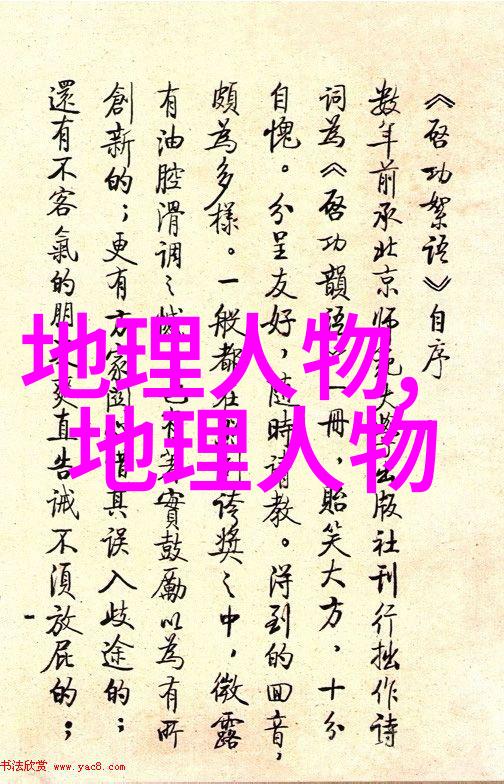 《啓功絮語》自序
數年前承北京師範大學出版社刊行拙作詩
詞為《啓功韻語》一冊，貽笑大方，十分
自愧。分呈友好，隨時請教。得到的回音，
頗為多樣。一般都在 誇獎之中，微露
有油腔滑調之 實鼓勵以為有所
創新的；更有方家 惜其誤入歧途的；
還有不客氣的朋友爽直告诫不須放屁的；
地理人物,
地理人物
书法欣赏 www.yac8.com